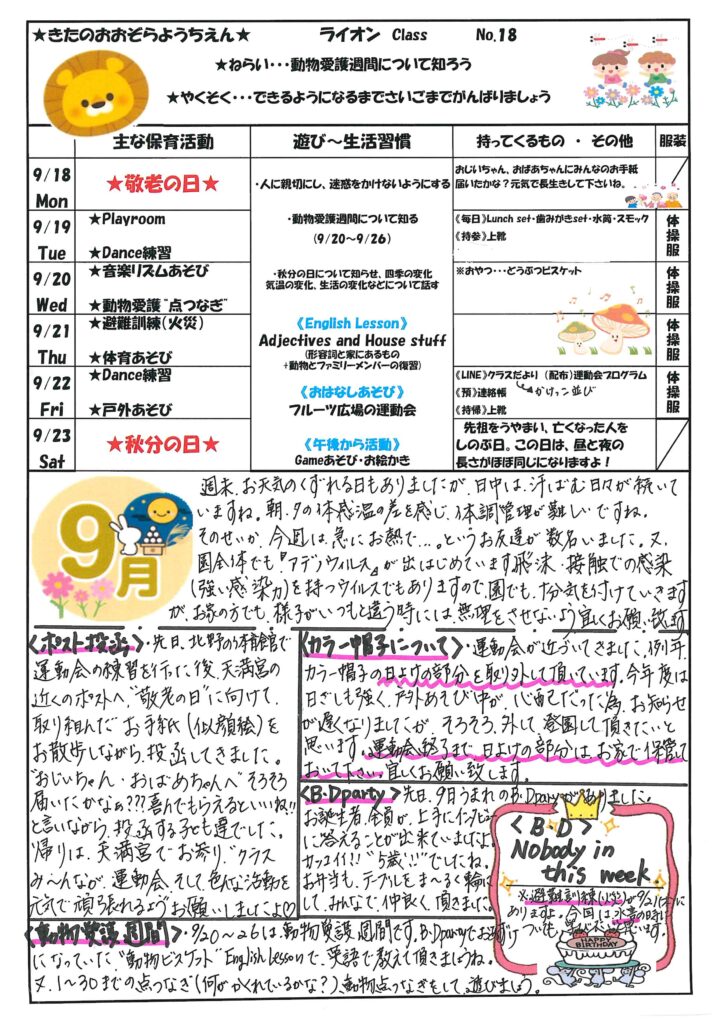 ★きたのおおぞらようちえん★ ライオン Class No.18
★ねらい・・・動物愛護週間について知ろう
★やくそく・・・できるようになるまでさいごまでがんばりましょう
主な保育活動 遊び～生活習慣 持ってくるもの ・ その他 服装
9/18
Mon
★敬老の日★
・人に親切にし、迷惑をかけないようにする
おじいちゃん、おばあちゃんにみんなのお手紙
届いたかな？元気で長生きして下さいね。
9/19
Tue
★Playroom
★Dance練習
・動物愛護週間について知る
(9/20～9/26)
《毎日》Lunch set・歯みがきset・水筒・スモック
《持参》上靴
体操服
9/20
Wed
★音楽リズムあそび
★動物愛護"点つなぎ"
・秋分の日について知らせ、四季の変化
気温の変化、生活の変化などについて話す
※おやつ・・・どうぶつビスケット
体操服
9/21
Thu
★避難訓練(火災)
★体育あそび
《English Lesson》
Adjectives and House stuff
(形容詞と家にあるもの
+動物とファミリーメンバーの復習)
体操服
9/22
Fri
★Dance練習
★戸外あそび
《おはなしあそび》
フルーツ広場の運動会
《LINE》クラスだより (配布)運動会プログラム
《預》連絡帳 かけっこ並び
《持帰》上靴
体操服
9/23
Sat
★秋分の日★
《午後から活動》
Gameあそび・お絵かき
先祖をうやまい、亡くなった人を
しのぶ日。この日は、昼と夜の
長さがほぼ同じになりますよ！
9月
週末、お天気のくずれる日もありましたが、日中は、汗ばむ日々が続いて
いますね。朝、夕の体感温の差を感じ、体調管理が難しいですね。
そのせいか、今週は、急にお熱で…。というお友達が数名いました。又、
園全体でも『アデノウィルス』が出はじめています。飛沫・接触での感染
(強い感染力)を持つウイルスでもありますので、園でも、十分気を付けていきます
が、お家の方でも、様子がいつもと違う時には、無理をさせないよう宜しくお願い致します
<ポスト投函>・先日、北野の体育館で
運動会の練習を行った後、天満宮の
近くのポストへ、"敬老の日"に向けて、
取り組んだお手紙(似顔絵)を
お散歩しながら、投函してきました。
"おじいちゃん・おばあちゃんへ"そろそろ
届いたかなぁ???喜んでもらえるといいね!!
と言いながら、投函する子も達でした。
帰りは、天満宮でお参り。"クラス
み～んなが、運動会、そして、色んな活動を
元気で頑張れるよう"お願いしましたよ♡
<カラー帽子について>・運動会が近づいてきました、例年、
カラー帽子の日よけの部分を取り外して頂いています。今年度は
日ざしも強く、戸外あそび中が、心配だった為、お知らせ
が遅くなりましたが、そろそろ、外して登園して頂きたいと
思います。運動会終了まで、日よけの部分は、お家で保管して
おいて下さい。宜しくお願い致します。
<B・Dparty>先日、9月うまれのB・Dpartyがありました。
お誕生者、全員が、上手にインタビュー
に答えることが出来ていましたよ。
カッコイイ!!"5歳"!!でしたね。
お弁当も、テーブルをま～るく輪に
して、みんなで、仲良く、頂きました。
<B・D>
Nobody in
this week
※避難訓練(火災)が9/21(木)に
ありますよ。今回は、
HAPPY BIRTHDAY
<動物愛護週間>・9/20～26は、動物愛護週間です。B・Dpartyで
になっていた、"動物ビスケット"English Lessonで、英語で教えて頂きましょうね。
又、1～30までの点つなぎ(何がかくれているかな？)、動物点つなぎもして、遊びましょう。